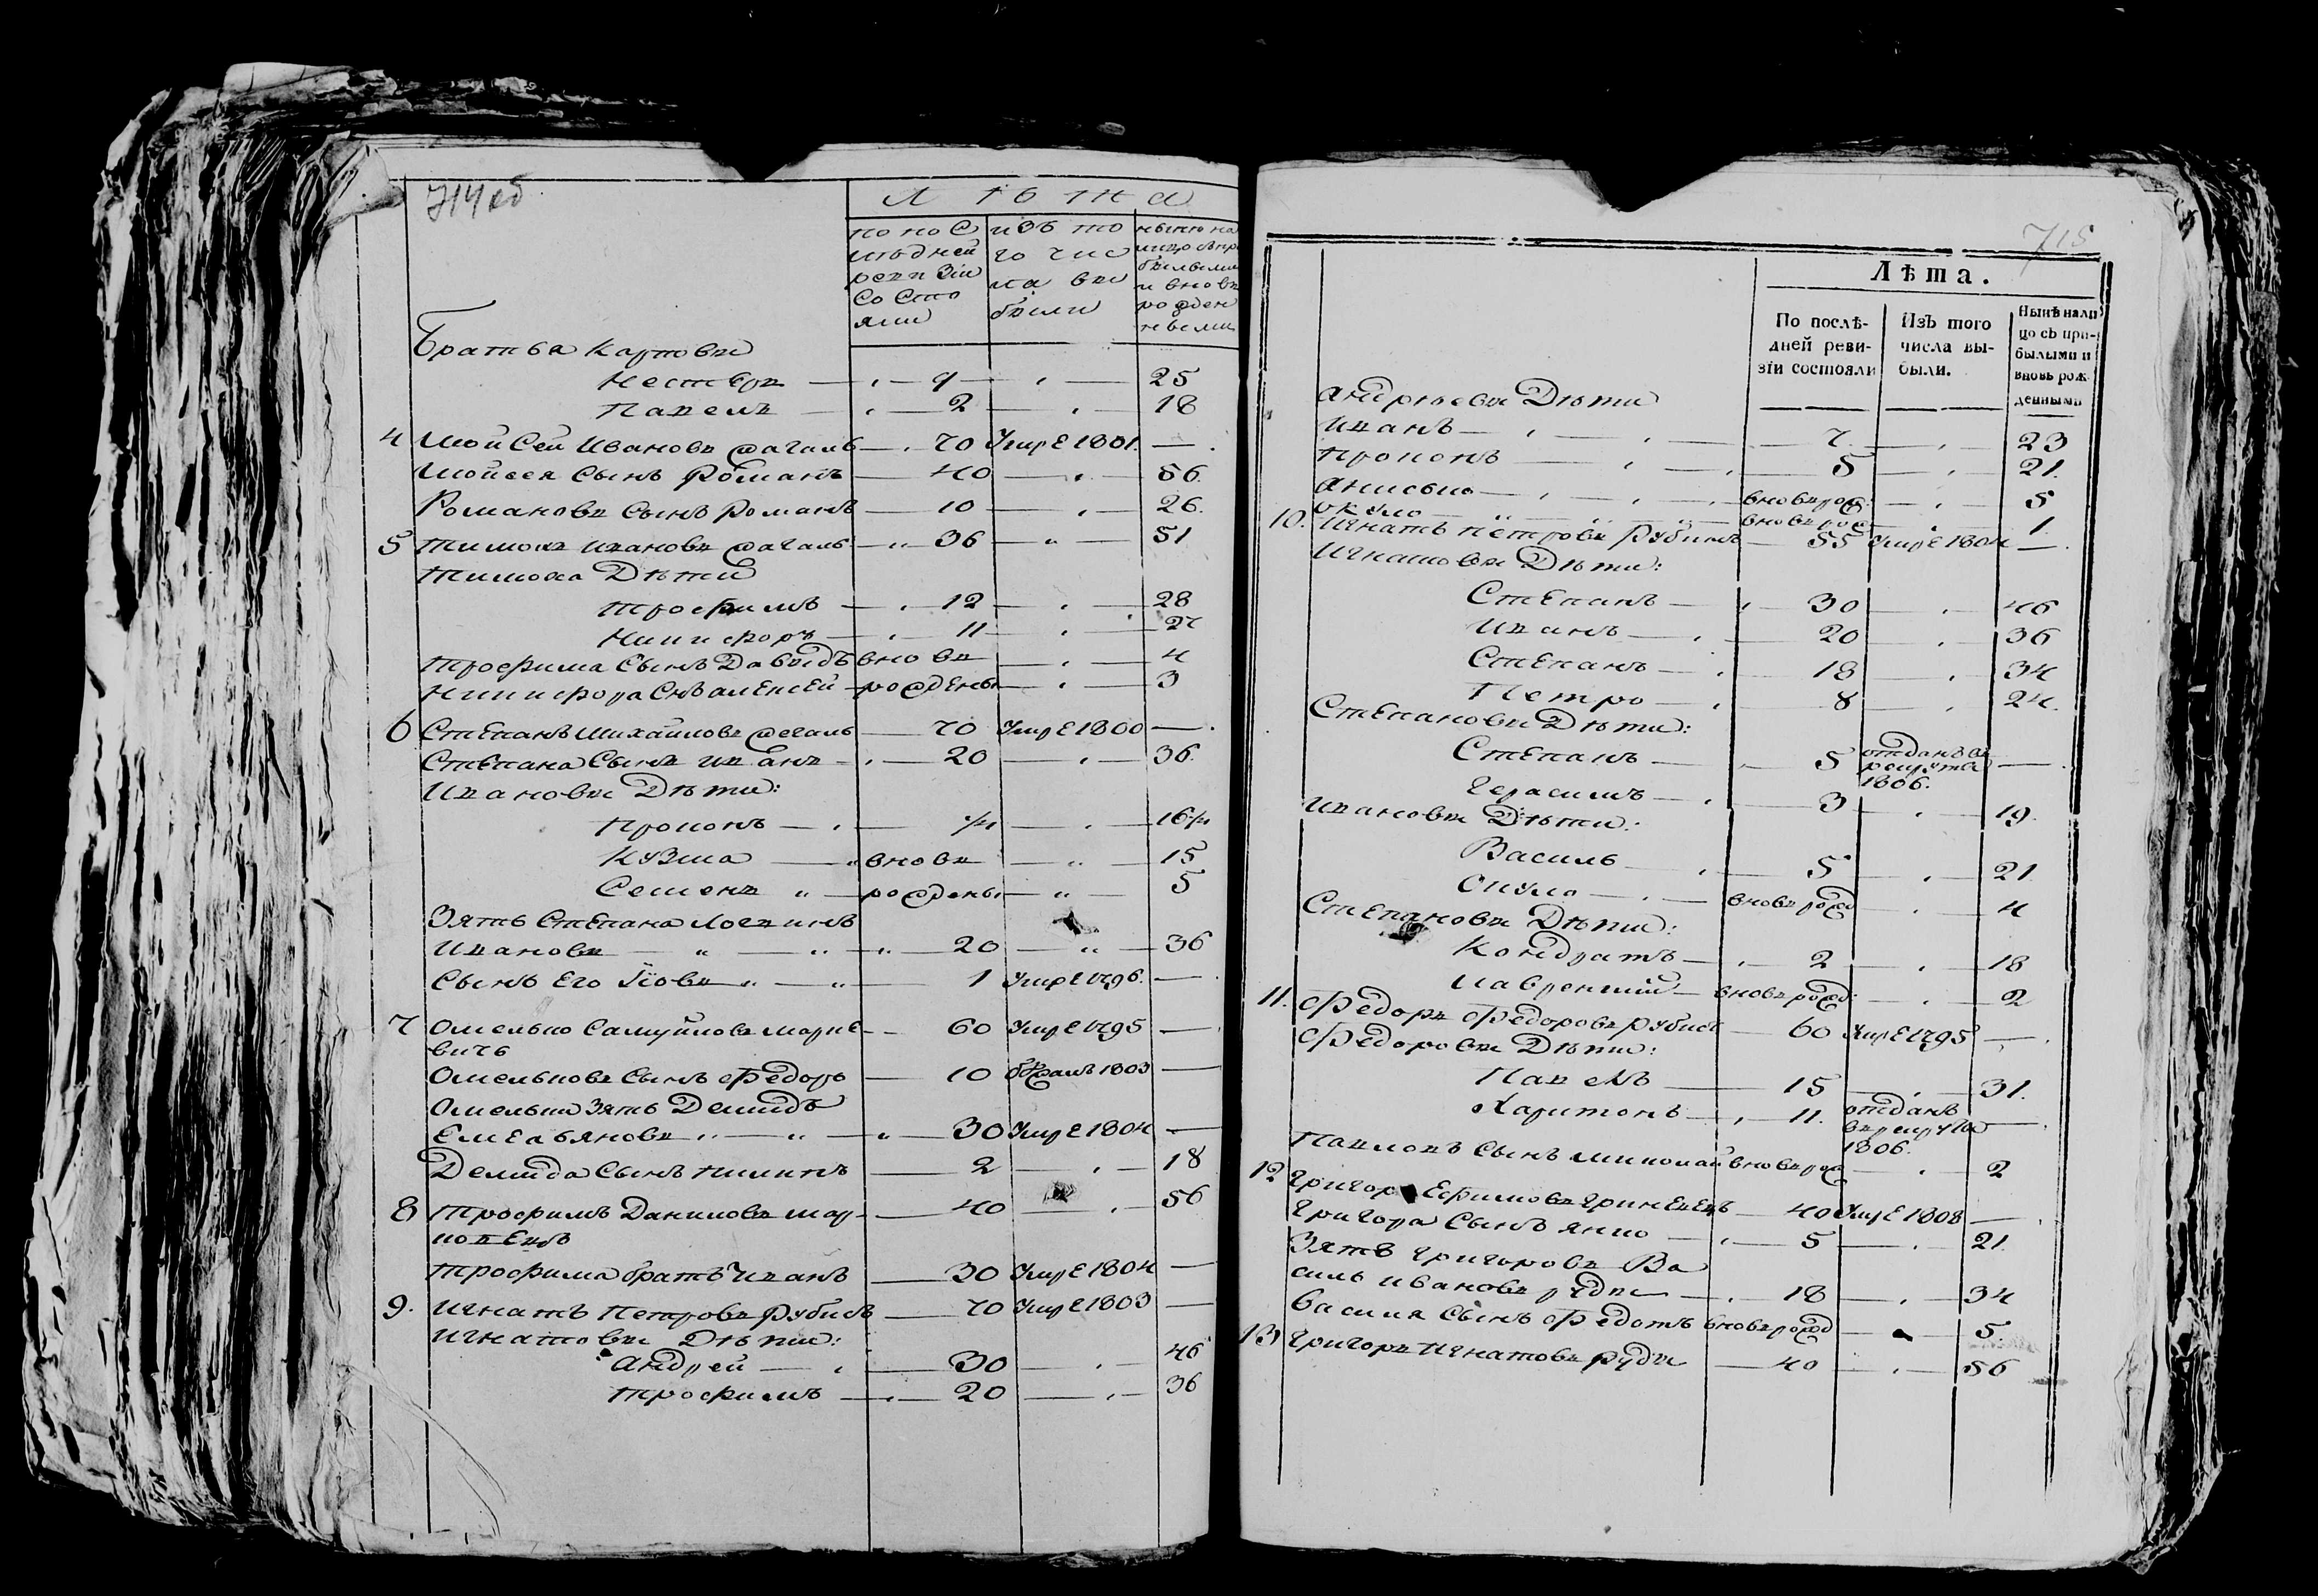 714 об
Лѣта
по по С
лѣдней
ревизіи
со Сто
яли
изъ то
го чис
ла вы
были
ныне на
лицо съ при
былыми
и вновь
рожден
ными
Братья Карповы
Несторъ — 9 — 25
Павелъ — 2 — 18
4 Мойсей Ивановъ — 70 Умре 1801. —
Мойсея Сынъ Романъ — 40 — 56.
Романовъ Сынъ Романъ — 10 — 26.
5 Тимохъ Ивановъ — 36 — 51
Тимоха Дѣти
Трофимъ — 12 — 28
Никифоръ — 11 — 27
Трофима Сынъ Давыдъ вновь — 4
Никифора Снъ Алексей рождены — 3
6 Степанъ Михайловъ — 70 Умре 1800 —
Степана Сынъ Иванъ — 20 — 36.
Ивановы Дѣти:
Прокопъ — 1/4 — 16 1/4
Кузма — вновь — 15
Семенъ — рождены — 5
Зять Степана Логвинъ
Ивановъ — 20 — 36
Сынъ Его Іовъ — 1 Умре 1796. —
7 Омелько Самуйловъ Марке- — 60 Умре 1795 —
вичъ
Омельковъ Сынъ Федоръ — 10 бежалъ 1803 —
Омелька Зять Демидъ
Емельяновъ — 30 Умре 1804 —
Демида Сынъ Пилипъ — 2 — 18
8 Трофимъ Даниловъ Мар- — 40 — 56
ковецъ
Трофима братъ Иванъ — 30 Умре 1804 —
9. Игнатъ Петровъ Рубисъ — 70 Умре 1803 —
Игнатовы Дѣти:
Андрей — 30 — 46
Трофимъ — 20 — 36
715
Лѣта.
По послѣ-
дней реви-
зіи состояли
Изъ того
числа вы-
были.
Нынѣ нали
цо съ при-
былыми и
вновь рож
денными
Андреевы Дѣти
Иванъ — 7 — 23
Прокопъ — 5 — 21.
Анисько — вновь рож: — 5
Окуло — вновь рож — 1.
10. Игнатъ Петровъ Рубисъ — 55 Умре 1804 —
Игнатовы Дѣти:
Степанъ — 30 — 46
Иванъ — 20 — 36
Степанъ — 18 — 34
Петро — 8 — 24.
Степановы Дѣти:
Степанъ — 5 отданъ въ
рекруты
1806. —
Герасимъ — 3 — 19.
Ивановы Дѣти:
Василь — 5 — 21
Окуло — вновь рожд — 4
Степановы Дѣти:
Кондратъ — 2 — 18
Лаврентій — вновь рожд: — 2
11. Федоръ Федоровъ Рубисъ — 60 Умре 1795 —
Федоровы Дѣти:
Павелъ — 15 — 31.
Харитонъ — 11. отданъ
въ рекруты
1806. —
Павловъ Сынъ Миколай вновь рож — 2
12 Григоръ Ефимовъ Гриневецъ — 40 Умре 1808 —
Григора Сынъ Янко — 5 — 21.
Зять Григоровъ Ва
силь Ивановъ — 18 — 34
Василя Сынъ Федотъ вновь рожд — 5.
13 Григоръ Игнатовъ — 40 — 56